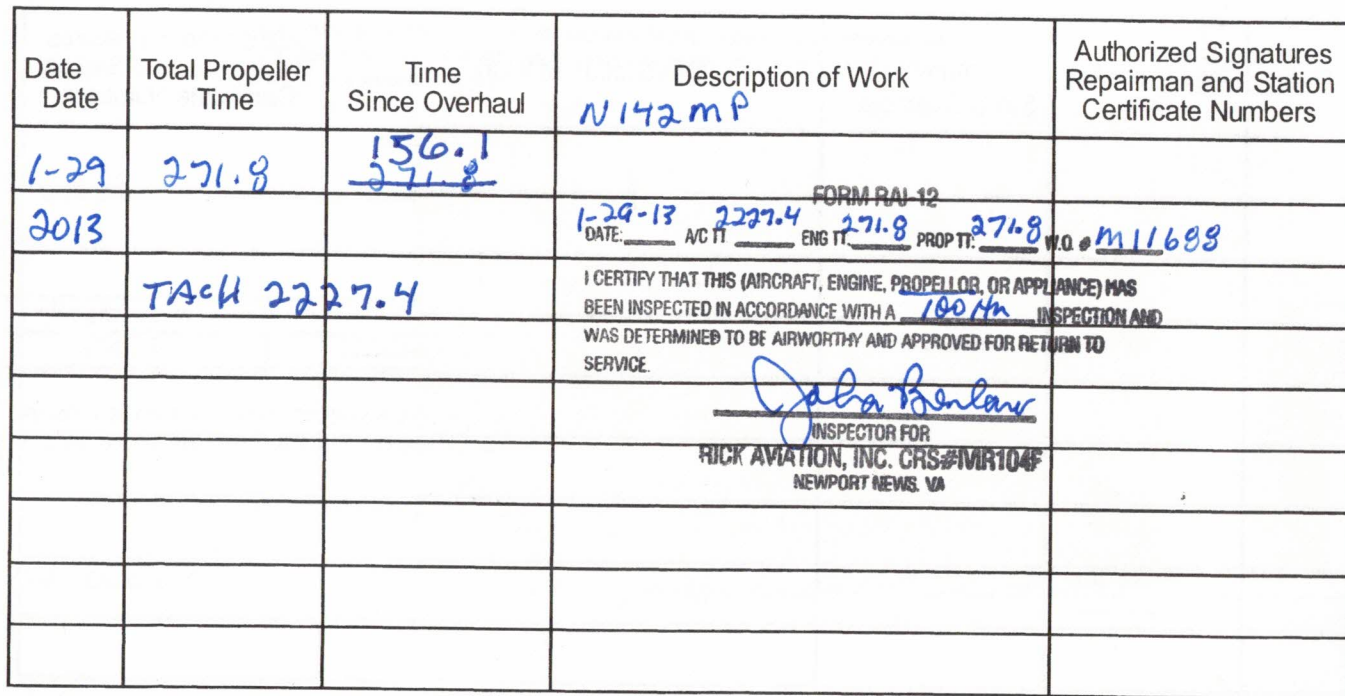 Date Date
Total Propeller Time
Time Since Overhaul
Description of Work
N142MP
Authorized Signatures Repairman and Station Certificate Numbers
1-29 271.8 156.1
271.8
2013
TACH 2227.4
FORM RAI-12
DATE: 1-29-13 A/C TT 2227.4 ENG TT. 271.8 PROP TT: 271.8 W.O. # M11688
I CERTIFY THAT THIS (AIRCRAFT, ENGINE, PROPELLOR, OR APPLIANCE) HAS
BEEN INSPECTED IN ACCORDANCE WITH A 100 Hr INSPECTION AND
WAS DETERMINED TO BE AIRWORTHY AND APPROVED FOR RETURN TO
SERVICE.
INSPECTOR FOR
RICK AVIATION, INC. CRS#IVIR104F
NEWPORT NEWS. VA